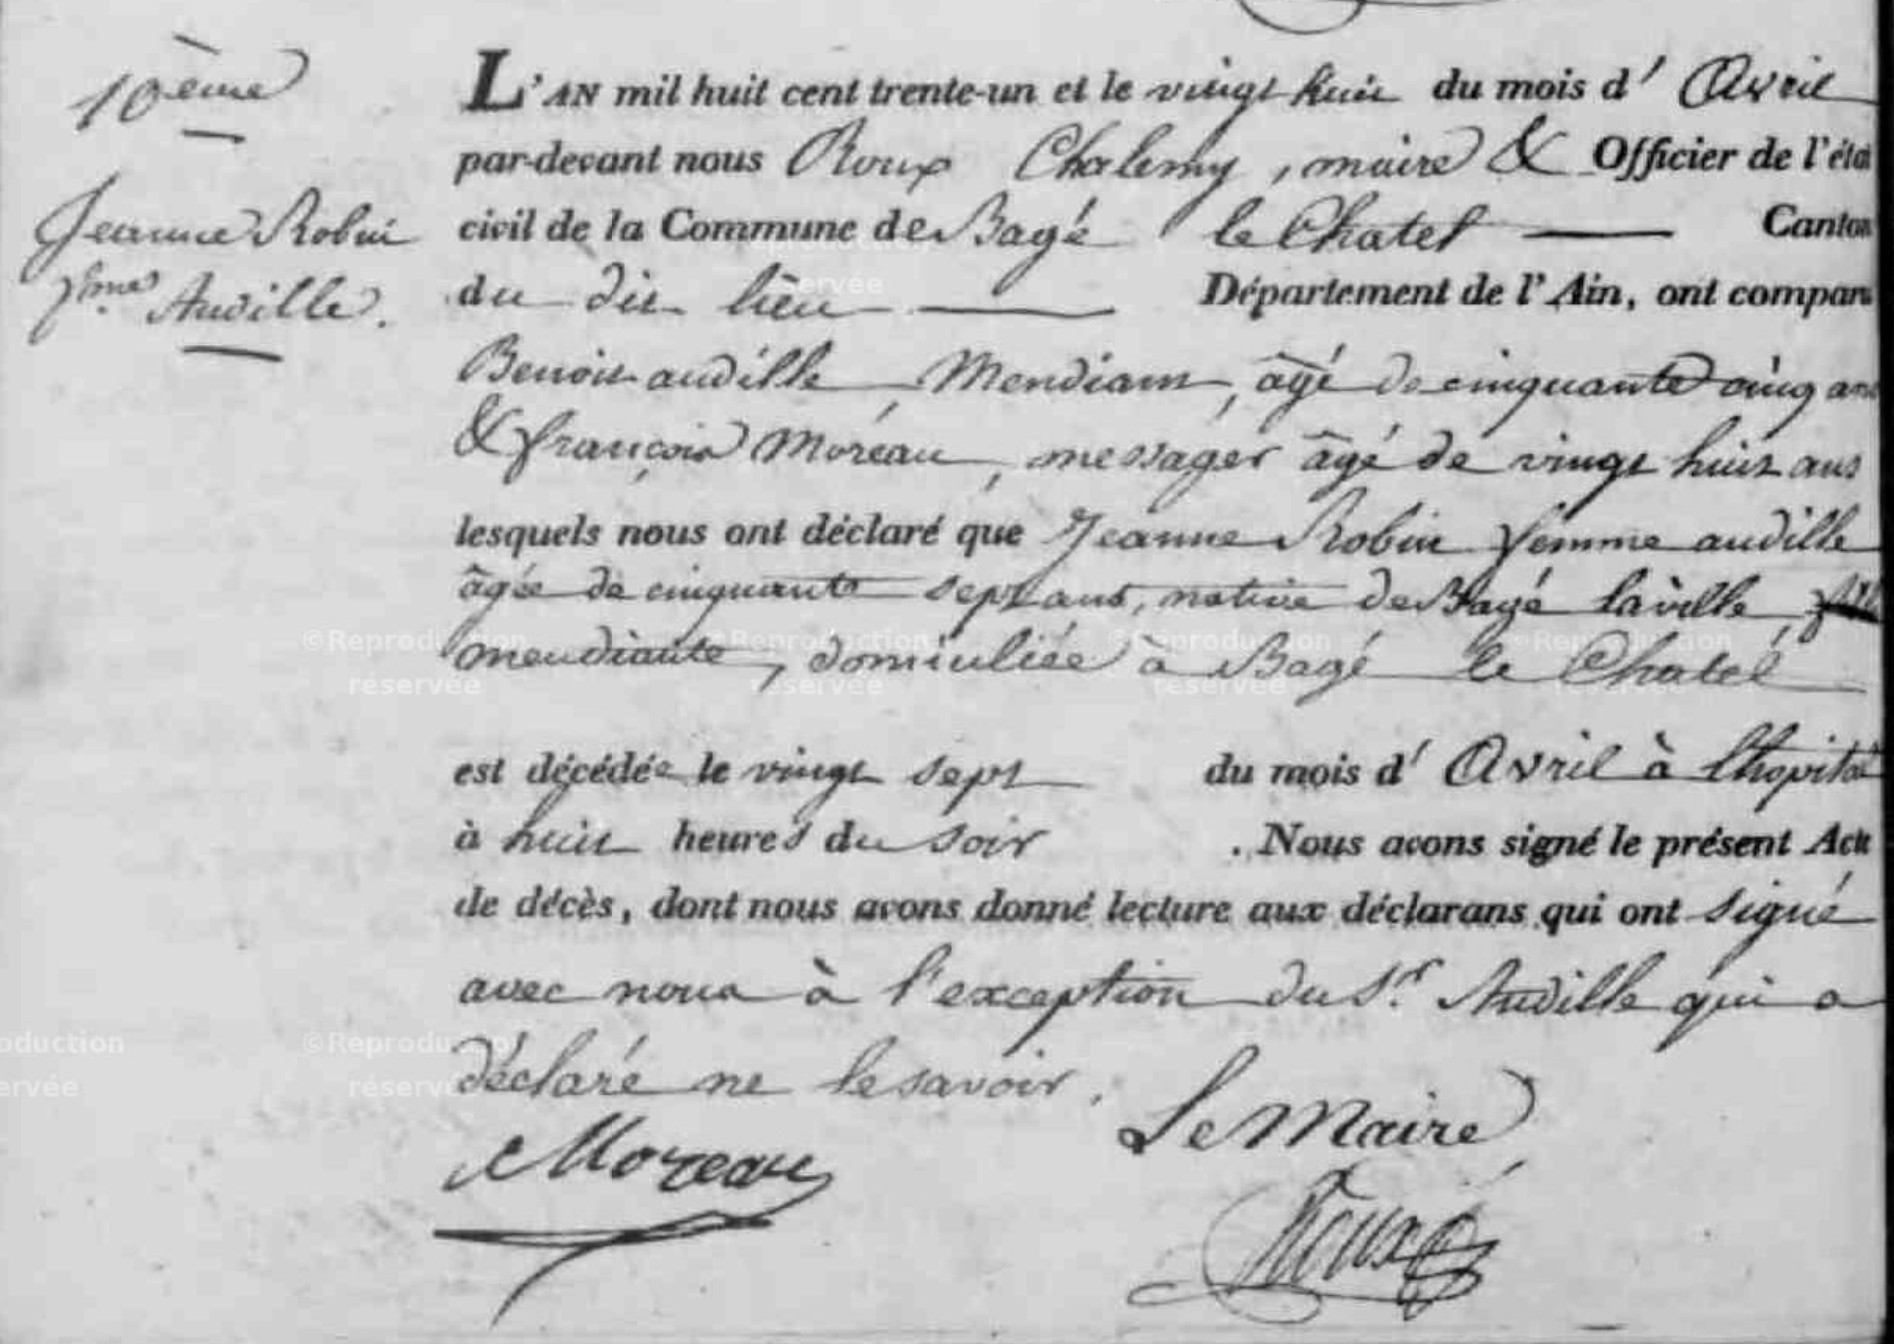 10ème
Jeanne Robin
fme Audille.
L'AN mil huit cent trente-un et le vingt huit du mois d' Avril
par-devant nous Roux Chalemy, maire & Officier de l'état
civil de la Commune de Bagé le Chatel Canton
du dit lieu Département de l'Ain, ont comparu
Benoit audille, Mendiant, âgé de cinquante cinq ans
& françois Moreau, messager âgé de vingt huit ans
lesquels nous ont déclaré que Jeanne Robin femme audille
âgée de cinquante sept ans, native de Bagé laville,
mendiante, domiciliée à Bagé le Chatel
est décédée le vingt sept du mois d' Avril à lhopital
à huit heures du soir. Nous avons signé le présent Acte
de décès, dont nous avons donné lecture aux déclarans qui ont signé
avec nous à l'exception du Sr. Audille qui a
déclaré ne le savoir.
Le Maire
Moreau
Roux
©Reproduction réservée